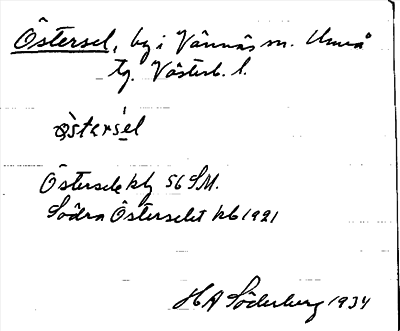 Östersel, by i Vännäs sn. Umeå
tg. Västerb. l.
östersel
Östersele kby 56 SM.
Södra Österselet kb 1921
HA Söderberg 1934